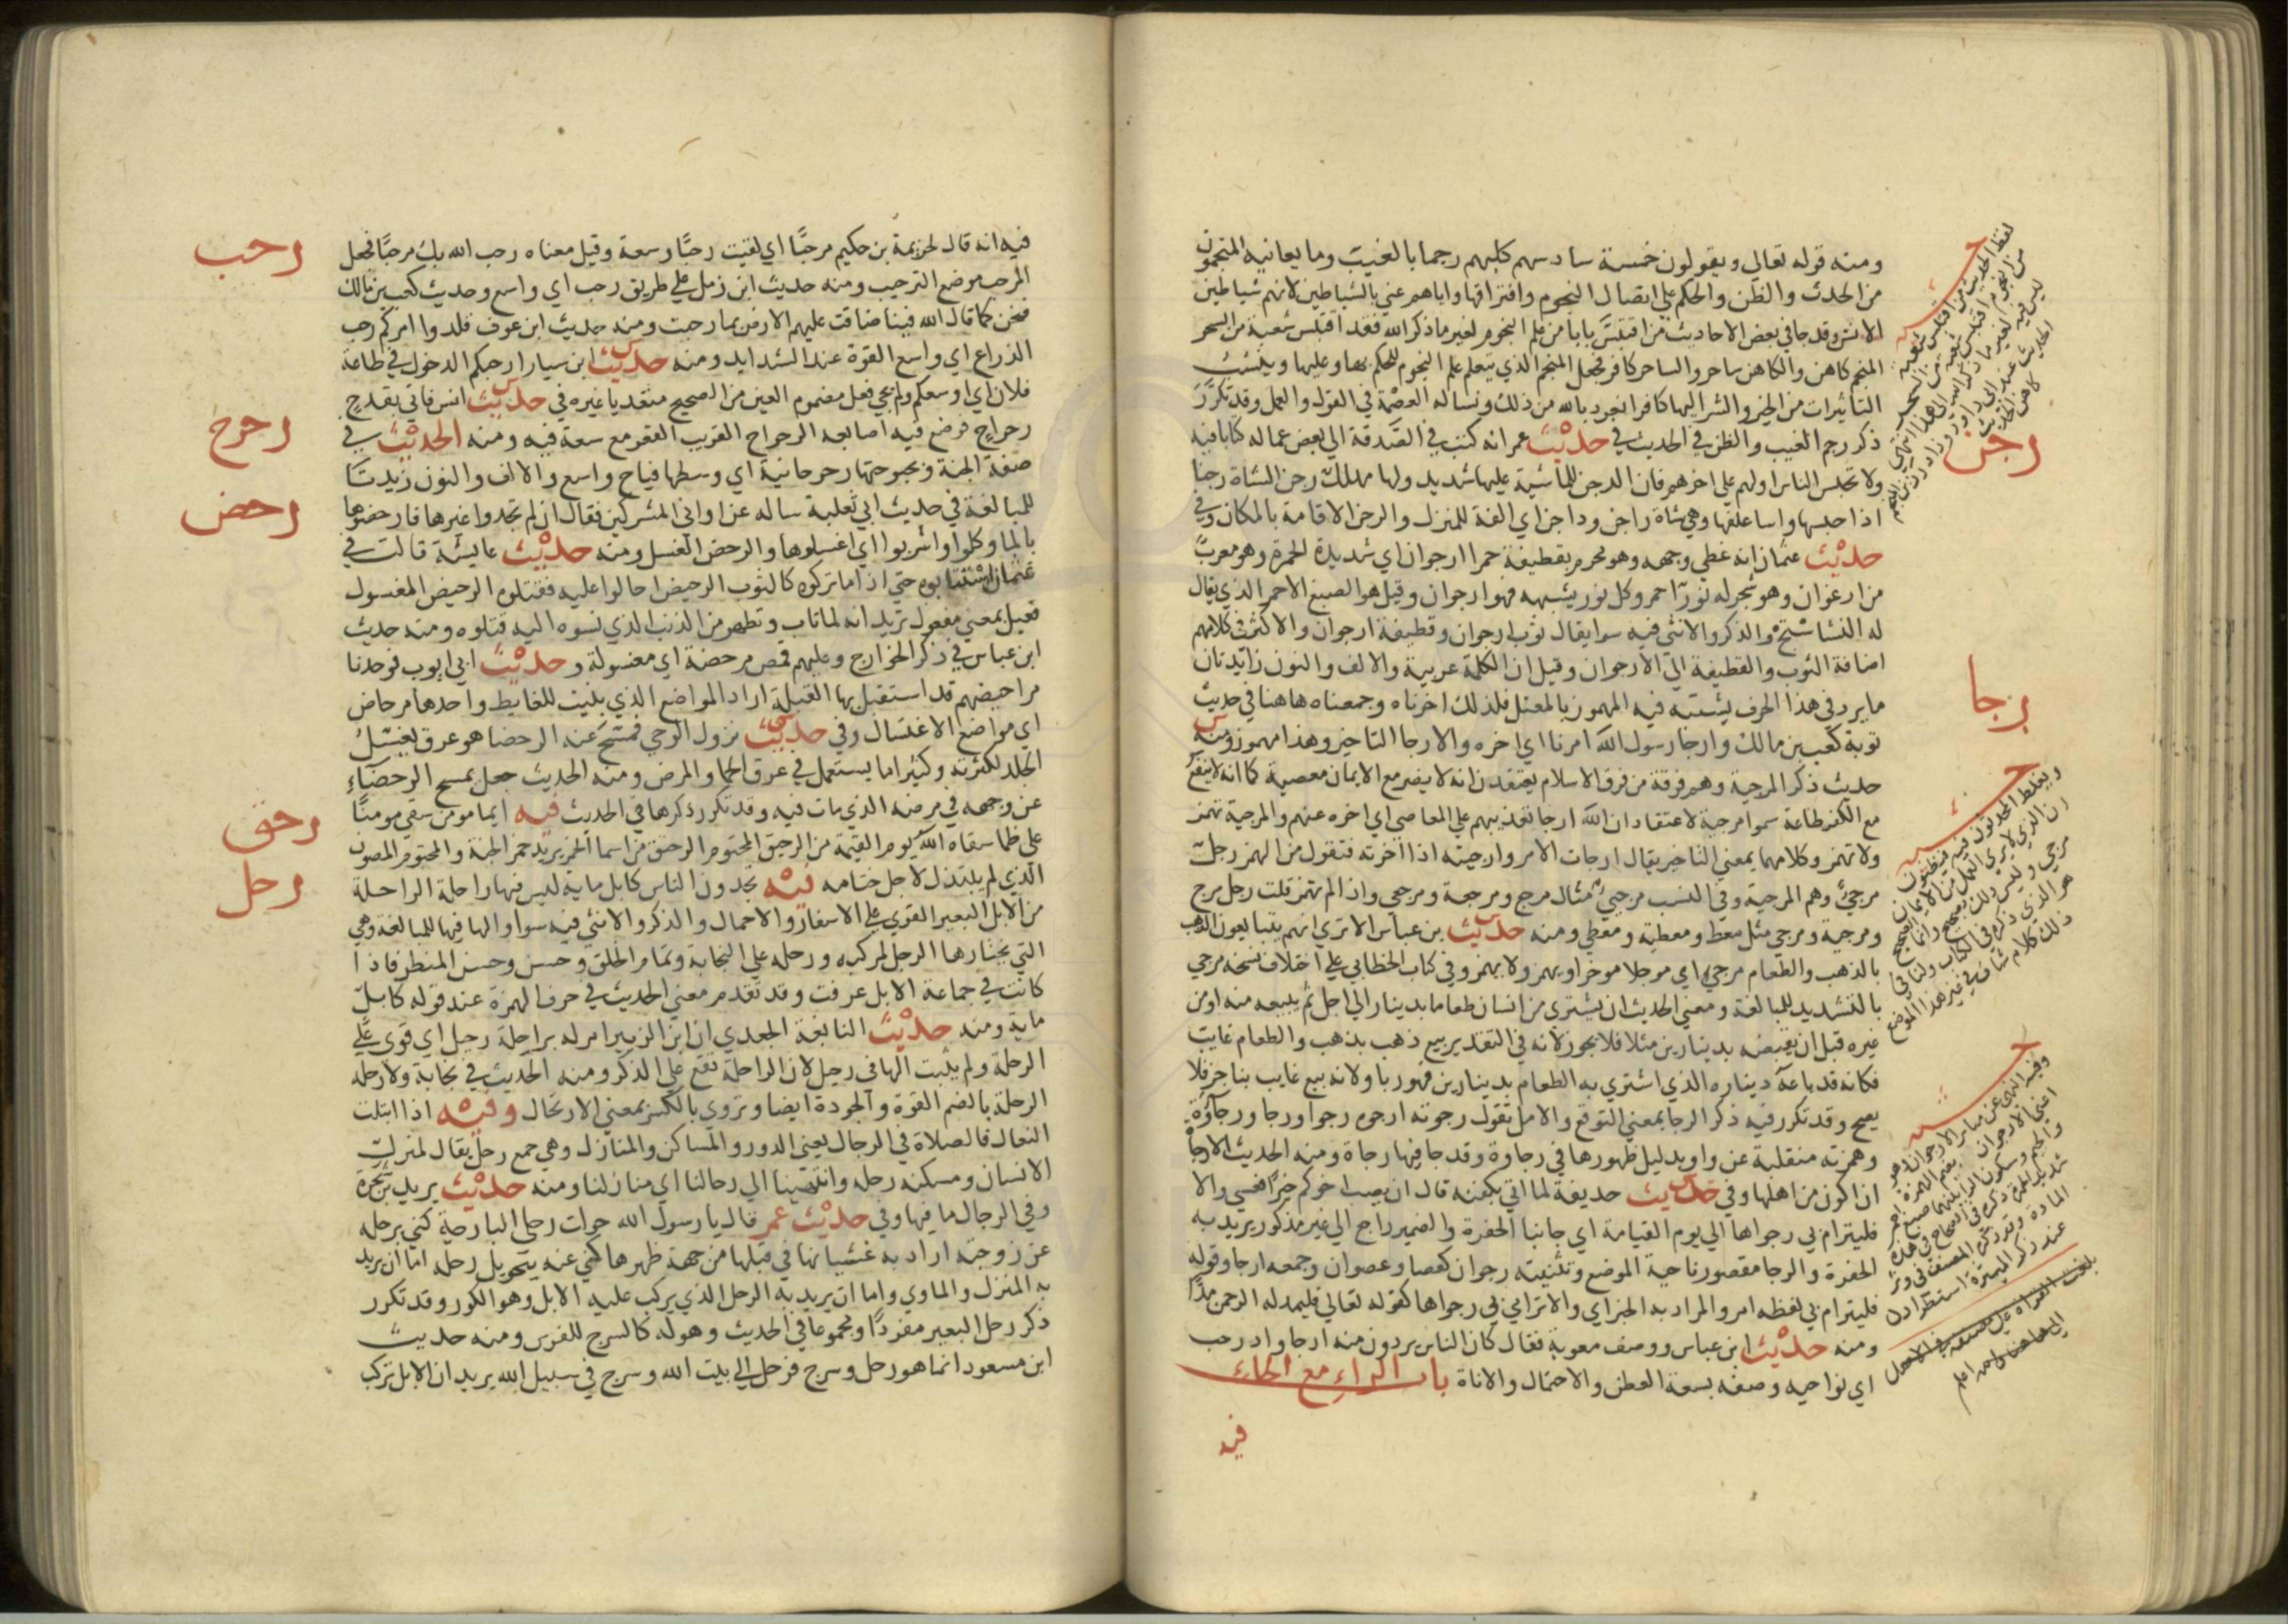 ومنه قوله تعالي ويقولون خمسة سادسهم كلبهم رجما بالغيب وما يعانيه المنجمون
من الحدث والظن والحكم علي اتصال النجوم وافتراقها واياهم عني بالشياطين لانهم شياطين
الانس وقد جا في بعض الاحاديث من اقتبس بابا من علم النجوم لغير ما ذكر الله فقد اقتبس شعبة من السحر
المنجم كاهن والكاهن ساحر والساحر كافر فجعل المنجم الذي يتعلم علم النجوم للحكم بها وعليها وينسب
التأثيرات من الخير والشر اليها كافرا نعوذ بالله من ذلك ونساله العصمة في القول والعمل وقد تكرر
ذكر رجم الغيب والظن في الحديث في حديث عمر انه كتب في الصدقة الي بعض عماله كتابا فيه
ولا تحبس الناس اولهم علي اخرهم فان الرجن للماشية عليها شديد ولها مهلك رجن الشاة رجنا
اذا حبسها واسا علفها وهي شاة راجن وداجن اي الفة للمنزل والرجن الاقامة بالمكان وفي
حديث عثمان انه غطي وجهه وهو محرم بقطيفة حمرا ارجوان اي شديدة الحمرة وهو معرب
من ارغوان وهو شجر له نور احمر وكل نور يشبهه فهو ارجوان وقيل هو الصبغ الاحمر الذي يقال
له النشاستج والذكر والانثي فيه سوا يقال ثوب ارجوان وقطيفة ارجوان والاكثر في كلامهم
اضافة الثوب والقطيفة الي الارجوان وقيل ان الكلمة عربية والالف والنون زائدتان
ما يرد في هذا الحرف يشتبه فيه المهموز بالمعتل فلذلك اخرناه وجمعناه هاهنا في حديث
توبة كعب بن مالك وارجا رسول الله امرنا اي اخره والارجا التاخير وهذا مهموز ومنه
حديث ذكر المرجية وهم فرقة من فرق الاسلام يعتقدون انه لا يضر مع الايمان معصية كما انه لا ينفع
مع الكفر طاعة سموا مرجية لاعتقادان الله ارجا تعذيبهم علي المعاصي اي اخره عنهم والمرجية تهمز
ولا تهمز وكلاهما بمعني التاخير يقال ارجات الامر وارجيته اذا اخرته فتقول من الهمز رجل
مرجئ وهم المرجية وفي النسب مرجئي مثال مرجع ومرجعة ومرجعي واذا لم تهمز قلت رجل مرج
ومرجية ومرجي مثل معط ومعطية ومعطي ومنه حديث بن عباس الا تري انهم يتبايعون الذهب
بالذهب والطعام مرجي اي موجلا موخرا ويهمز ولا يهمز وفي كتاب الخطابي علي اختلاف نسخه مرجي
بالتشديد للمبالغة ومعني الحديث ان يشتري من انسان طعاما بدينار الي اجل ثم يبيعه منه او من
غيره قبل ان يقبضه بدينارين مثلا فلا يجوز لانه في التقدير بيع ذهب بذهب والطعام غايب
فكانه قد باعه ديناره الذي اشتري به الطعام بدينارين فهو ربا ولانه بيع غايب بناجز فلا
يصح وقد تكرر فيه ذكر الرجا بمعني التوقع والامل تقول رجوته ارجوه رجوا ورجا ورجاوة
وهمزته منقلبة عن واو بدليل ظهورها في رجاوة وقد جا فيها رجاة ومنه الحديث الا رجاة
ان اكون من اهلها وفي حديث حديفة لما اتي بكفنه قال ان يصب اخوكم خيرا فعسي والا
فليترام بي رجواها الي يوم القيامة اي جانبا الحفرة والضمير راجع الي غير مذكور يريد به
الحفرة والرجا مقصور ناحية الموضع وتثنيته رجوان كعصا وعصوان وجمعه ارجا وقوله
فليترام بي لفظه امر والمراد به الخبر اي والا ترامي بي رجواها كقوله تعالي فليمدد له الرحمن مدا
ومنه حديث ابن عباس ووصف معوية فقال كان الناس يردون منه ارجا واد رحب
اي نواحيه وصفه بسعة العطن والاحتمال والاناة باب الراء مع الحاء
فيه
رجن
رجا
لفظ الحديث من اقتبس شعبة
من النجوم اقتبس شعبة من السحر
ويغلط المحدثون فيه فيظنون
بلغت القراة علي مصنفه
فيه انه قال لخزيمة بن حكيم مرحبا اي لقيت رحبا وسعة وقيل معناه رحب الله بك مرحبا فجعل
المرحب موضع الترحيب ومنه حديث ابن زمل علي طريق رحب اي واسع وحديث كعب بن مالك
فنحن كما قال الله فينا ضاقت عليهم الارض بما رحبت ومنه حديث ابن عوف قلدوا امركم رحب
الذراع اي واسع القوة عند الشدايد ومنه حديث ابن سيار ارحبكم الدخول في طاعة
فلان اي اوسعكم ولم يجي فعل مضموم العين من الصحيح متعديا غيره في حديث انس فاتي بقدح
رحراح فوضع فيه اصابعه الرحراح القريب القعر مع سعة فيه ومنه الحديث في
صفة الجنة وبحبوحتها رحرحانية اي وسطها فياح واسع والالف والنون زيدتا
للمبالغة في حديث ابي ثعلبة ساله عن اواني المشركين فقال ان لم تجدوا غيرها فارحضوها
بالما وكلوا واشربوا اي اغسلوها والرحض الغسل ومنه حديث عايشة قالت في
عثمان استتابوه حتي اذا ما تركوه كالثوب الرحيض احالوا عليه فقتلوه الرحيض المغسول
فعيل بمعني مفعول تريد انه لما تاب وتطهر من الذنب الذي نسبوه اليه قتلوه ومنه حديث
ابن عباس في ذكر الخوارج وعليهم قمص مرحضة اي مغسولة وحديث ابي ايوب فوجدنا
مراحيضهم قد استقبل بها القبلة اراد المواضع الذي بنيت للغايط واحدها مرحاض
اي مواضع الاغتسال وفي حديث نزول الوحي فمسح عنه الرحضا هو عرق يغسل
الجلد لكثرته وكثيرا ما يستعمل في عرق الحما والمرض ومنه الحديث جعل يمسح الرحضاء
عن وجهه في مرضه الذي مات فيه وقد تكرر ذكرها في الحديث فيه ايما مومن سقي مومنا
علي ظما سقاه الله يوم القيمة من الرحيق المختوم الرحيق من اسما الخمر يريد خمر الجنة والمختوم المصون
الذي لم يبتذل لاجل ختامه فيه تجدون الناس كابل ماية ليس فيها راحلة الراحلة
من الابل البعير القوي علي الاسفار والاحمال والذكر والانثي فيه سوا والها فيها للمبالغة وهي
التي يختارها الرجل لمركبه ورحله علي النجابة وتمام الخلق وحسن وحسن المنظر فاذا
كانت في جماعة الابل عرفت وقد تقدم معني الحديث في حرف الهمزة عند قوله كابل
ماية ومنه حديث النابغة الجعدي ان ابن الزبير امر له براحلة رحيل اي قوي علي
الرحلة ولم يثبت الها في رحيل لان الراحلة تقع علي الذكر ومنه الحديث في نجابة ولا رحلة
الرحلة بالضم القوة والجودة ايضا وتروي بالكسر بمعني الارتحال وفيه اذا ابتلت
النعال فالصلاة في الرحال يعني الدور والمساكن والمنازل وهي جمع رحل يقال لمنزل
الانسان ومسكنه رحله وانتهينا الي رحالنا اي منازلنا ومنه حديث يزيد بن شجرة
وفي الرحال ما فيها وفي حديث عمر قال يا رسول الله حولت رحلي البارحة كني برحله
عن زوجته اراد به غشيانها في قبلها من جهة ظهرها كني عنه بتحويل رحله اما ان يريد
به المنزل والماوي واما ان يريد به الرحل الذي يركب عليه الابل وهو الكور وقد تكرر
ذكر رحل البعير مفردا ومجموعا في الحديث وهو له كالسرج للفرس ومنه حديث
ابن مسعود انما هو رحل وسرج فرحل الي بيت الله وسرج في سبيل الله يريد ان الابل تركب
رحب
رحرح
رحض
رحق
رحل